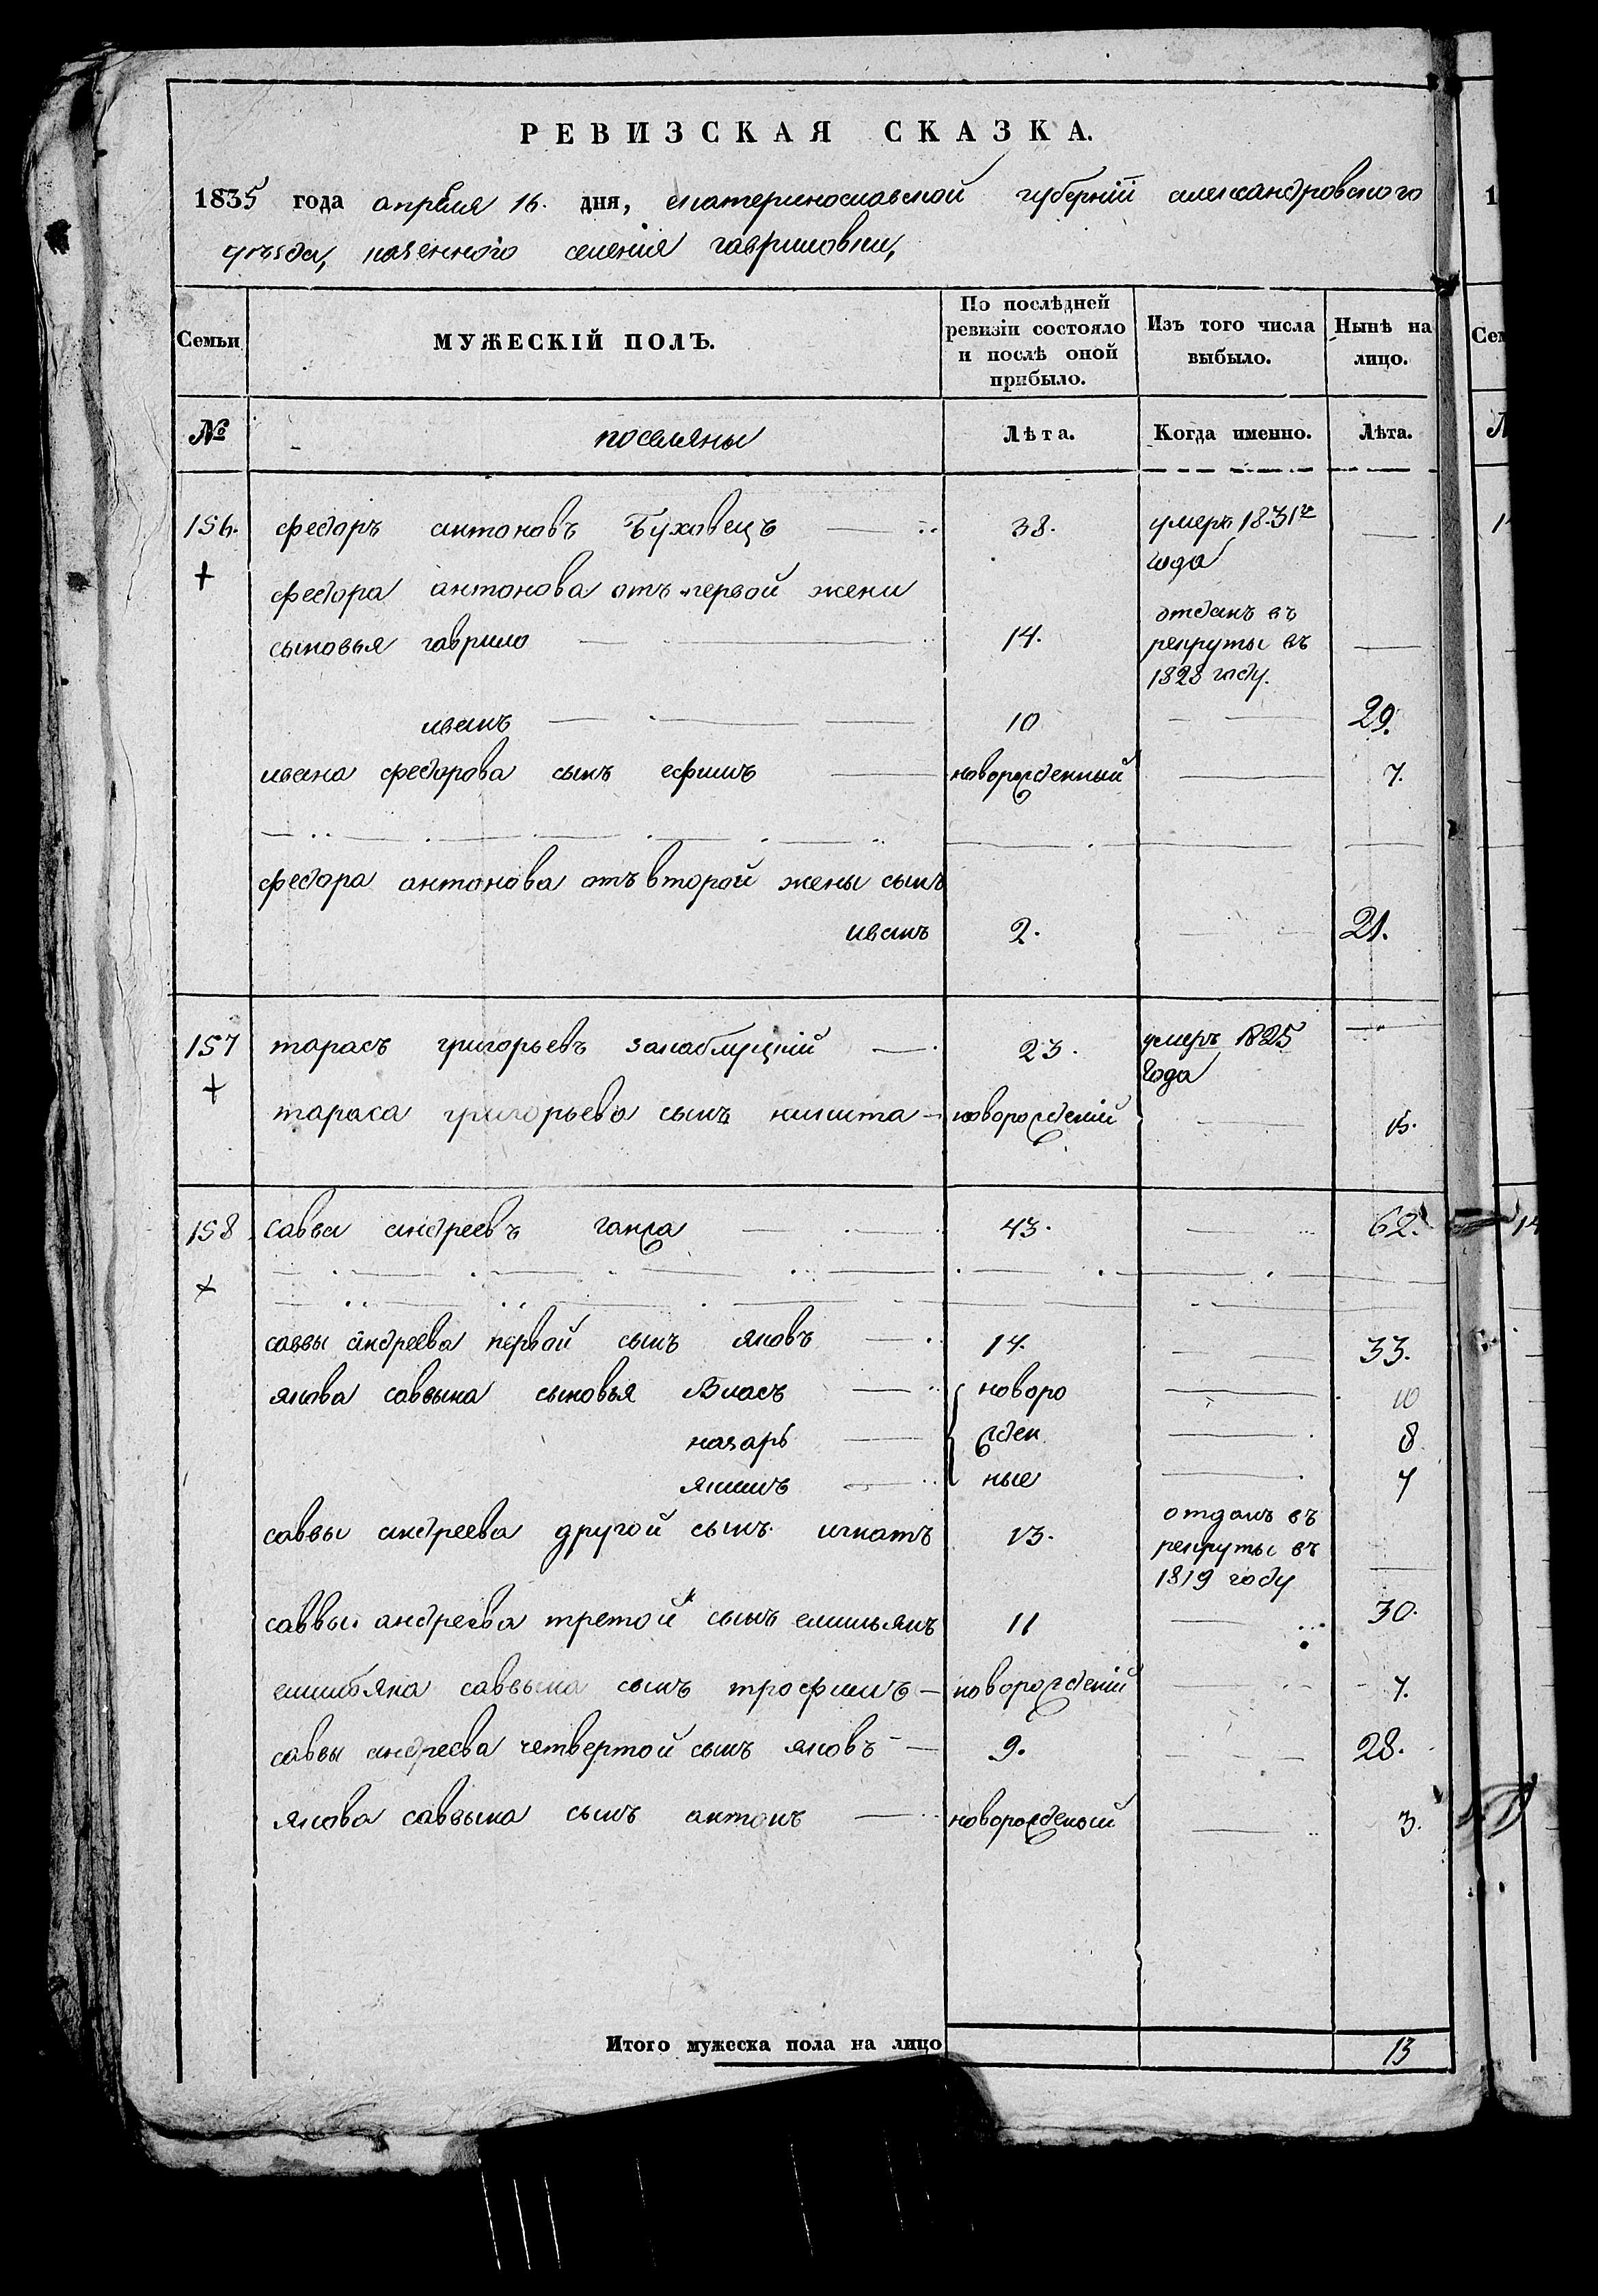 РЕВИЗСКАЯ СКАЗКА.
1835 года апреля 16. дня, екатеринославской губернїй александровского
уъзда, казенного селенїя гавриловки,
Семьи
МУЖЕСКІЙ ПОЛЪ.
По послѣдней ревизіи состояло и послѣ оной прибыло.
Изъ того числа выбыло.
Нынѣ на лицо.
№ поселяны Лѣта. Когда именно. Лѣта.
156. федоръ антоновъ Буховецъ 38. умеръ 1831го
года
федора антонова отъ первой жени
отданъ въ
сыновья гаврило 14. рекруты въ
1828 году.
иванъ 10 29.
ивана федорова сынъ ефимъ новорожденный 7.
федора антонова отъ второй жены сынъ
иванъ 2. 21.
157 тарасъ григорьевъ заблуцкій 23. умеръ 1825
года
тараса григорьева сынъ никита новорожденій
158 савва андреевъ 43. 62.
саввы андреева первой сынъ яковъ 14. 33.
якова саввина сыновья Власъ новоро 10
назаръ жден 8
якимъ ные 7
саввы андреева другой сынъ игнатъ 13. отданъ въ
рекруты въ
1819 году
саввы андреева третой сынъ емильянъ 11 30.
емильяна саввына сынъ трофимъ новорожденій 7.
саввы андреева четвертой сынъ яковъ 9. 28.
якова саввына сынъ антонъ новорожденой 3.
Итого мужеска пола на лицо 13